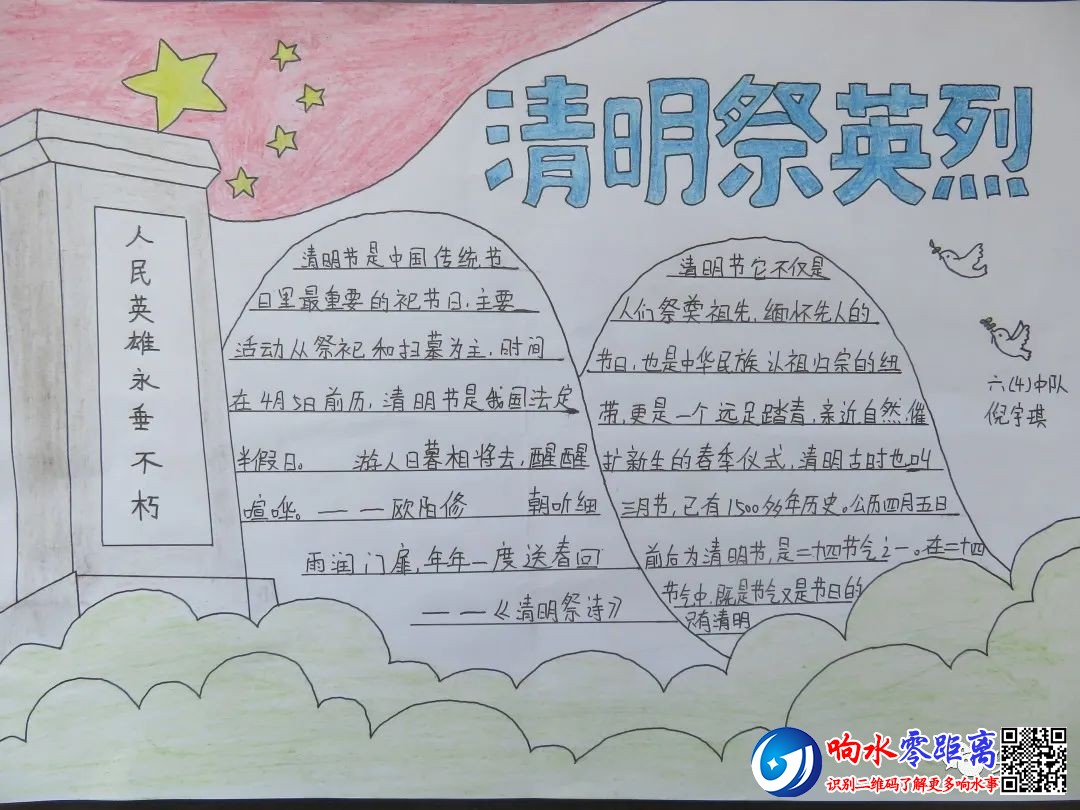 清明祭英烈
人民英雄永垂不朽
清明节是中国传统节
日里最重要的祀节日,主要
活动从祭祀和扫墓为主,时间
在4月5日前历,清明节是我国法定
半假日。 游人日暮相将去,醒醒
喧哗。——欧阳修 朝听细
雨润门扉,年年一度送春回
——《清明祭诗》
清明节它不仅是
人们祭奠祖先,缅怀先人的
节日,也是中华民族认祖归宗的纽
带,更是一个远足踏青,亲近自然,催
扩新生的春季仪式,清明古时也叫
三月节,已有1500多年历史。公历四月五日
前后为清明节,是二十四节气之一。在二十四
节气中,既是节气又是节日的
只有清明
六(4)中队
倪宇琪
响水零距离
识别二维码了解更多响水事